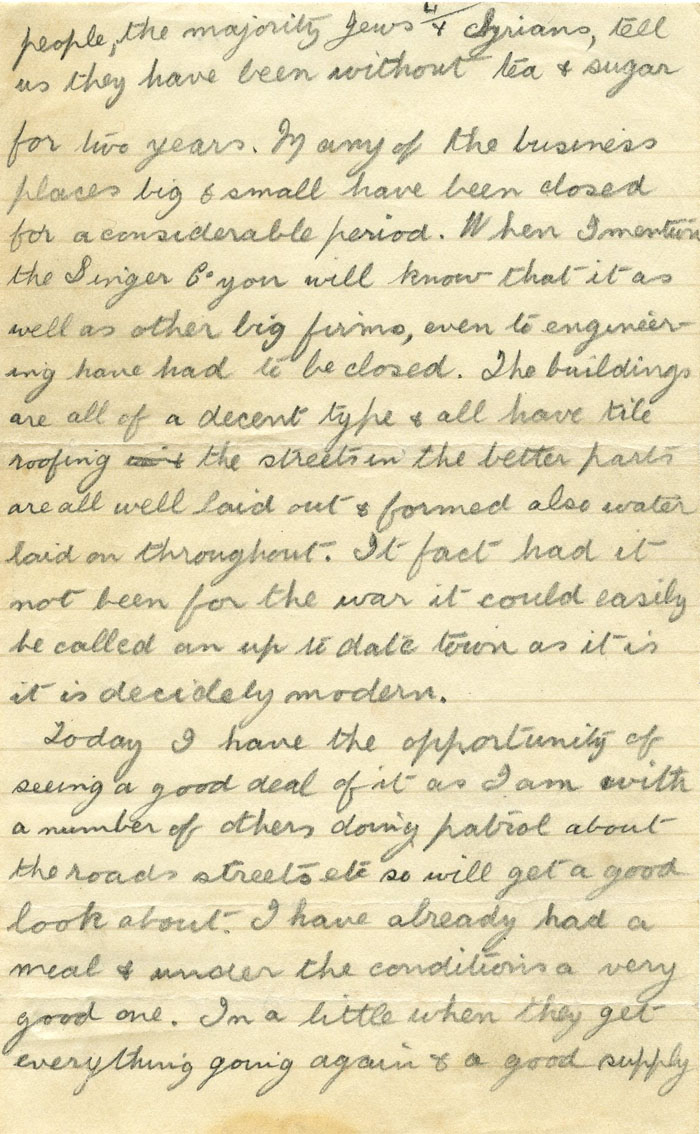 4/
people, the majority Jews & Syrians, tell
us they have been without tea & sugar
for two years. Many of the business
places big & small have been closed
for a considerable period. When I mention
the Singer Co you will know that it as
well as other big firms, even to engineer-
ing have had to be closed. The buildings
are all of a decent type & all have tile
roofing the streets in the better parts
are all well laid out & formed also water
laid on throughout. It fact had it
not been for the war it could easily
be called an up to date town as it is
it is decidely modern.
Today I have the opportunity of
seeing a good deal of it as I am with
a number of others doing patrol about
the roads streets etc so will get a good
look about. I have already had a
meal & under the conditions a very
good one. In a little when they get
everything going again & a good supply